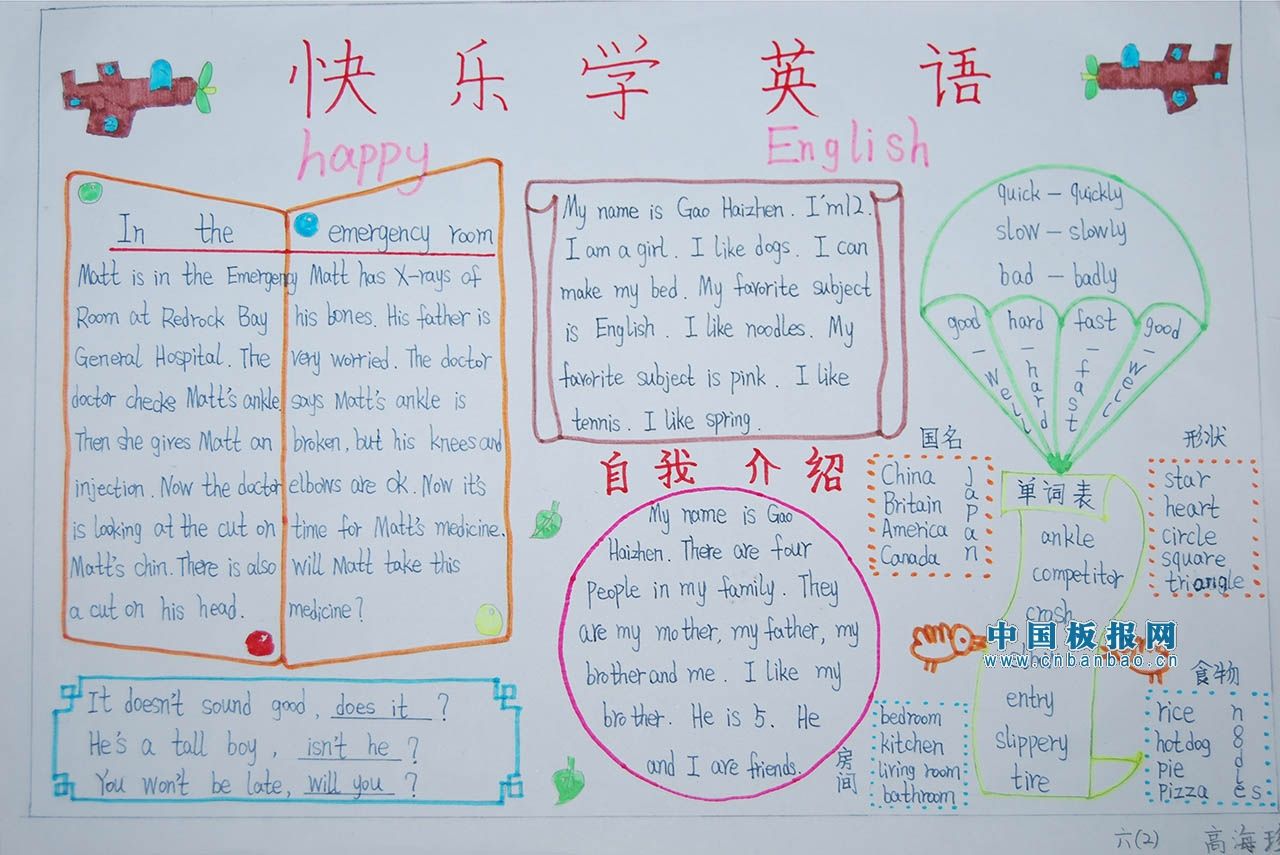 快乐学英语
happy English
In the emergency room
Matt is in the Emergency
Room at Redrock Bay
General Hospital. The
doctor checks Matt's ankle.
Then she gires Matt an
injection. Now the doctor
is looking at the cut on
Matt's chin. There is also
a cut on his head.
Matt has X-rays of
his bones. His father is
very worried. The doctor
says Matt's ankle is
broken, but his knees and
elbows are ok. Now it's
time for Matt's medicine.
will Matt take this
medicine?
It doesn't sound good, does it ?
He's a tall boy, isn't he ?
You won't be late, will you ?
My name is Gao Haizhen. I'm12.
I am a girl. I like dogs. I can
make my bed. My favorite subject
is English. I like noodles. My
favorite subject is pink. I like
tennis. I like spring.
自我介绍
My name is Gao
Haizhen. There are four
People in my family. They
are my mother, my father, my
brother and me. I like my
brother. He is 5. He
and I are friends.
quick - quickly
slow - slowly
bad - badly
good - well
hard - hard
fast - fast
good - well
国名
China
Britain
America
Canada
Japan
单词表
ankle
competitor
crash
entry
slippery
tire
形状
star
heart
circle
square
triangle
中国板报网
www.cnbanbao.cn
房间
bedroom
kitchen
living room
bathroom
食物
rice
hotdog
pie
pizza
n8dles
六(2) 高海珍